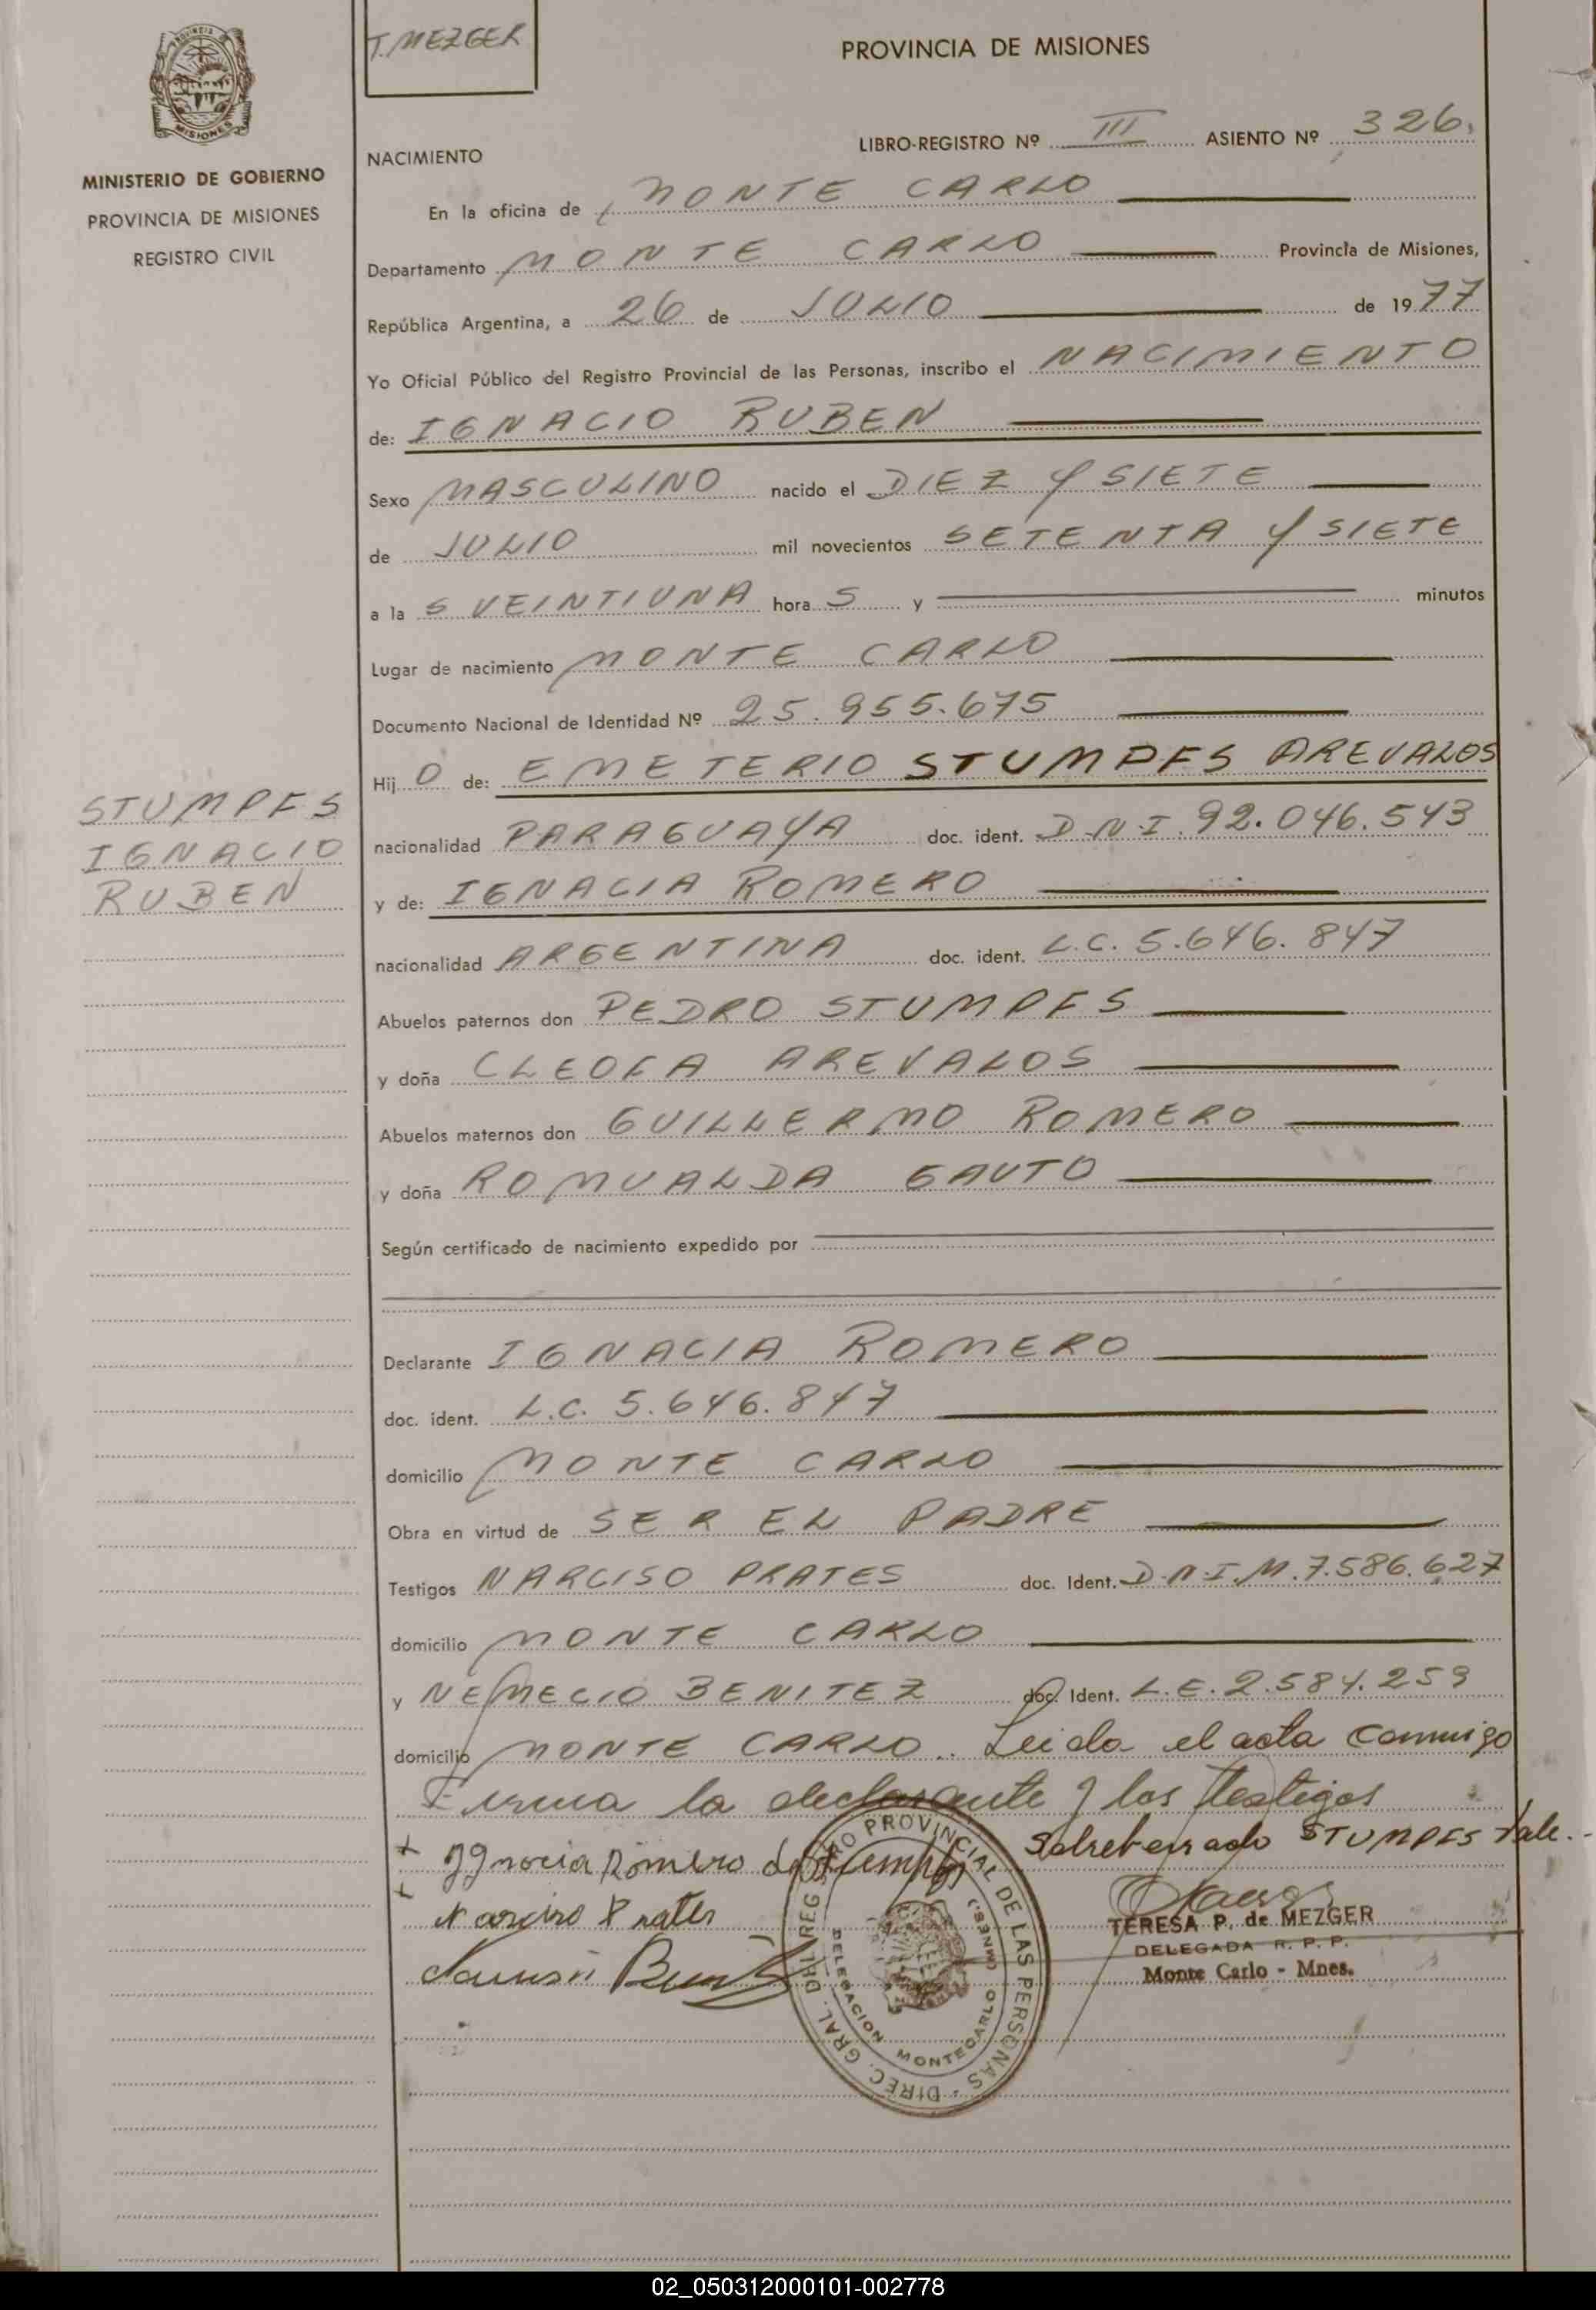 T. MEZGER
PROVINCIA DE MISIONES
MISIONES
MINISTERIO DE GOBIERNO
PROVINCIA DE MISIONES
REGISTRO CIVIL
LIBRO-REGISTRO Nº III ASIENTO Nº 326.
NACIMIENTO
En la oficina de MONTE CARLO
Departamento MONTE CARLO Provincia de Misiones,
República Argentina, a 26 de JULIO de 1977
Yo Oficial Público del Registro Provincial de las Personas, inscribo el NACIMIENTO
de: IGNACIO RUBEN
Sexo MASCULINO nacido el DIEZ Y SIETE
de JULIO mil novecientos SETENTA Y SIETE
a la S VEINTIUNA hora S y minutos
Lugar de nacimiento MONTE CARLO
Documento Nacional de Identidad Nº 25.955.675
Hij O de: EMETERIO STUMPFS AREVALOS
STUMPFS
IGNACIO
RUBEN
nacionalidad PARAGUAYA doc. ident. D.N.I. 92.046.543
y de: IGNACIA ROMERO
nacionalidad ARGENTINA doc. ident. L.C. 5.646.847
Abuelos paternos don PEDRO STUMPFS
y doña CLEOFA AREVALOS
Abuelos maternos don GUILLERMO ROMERO
y doña ROMUALDA GAUTO
Según certificado de nacimiento expedido por
Declarante IGNACIA ROMERO
doc. ident. L.C. 5.646.847
domicilio MONTE CARLO
Obra en virtud de SER EL PADRE
Testigos NARCISO PRATES doc. Ident. D.N.I.M. 7.586.627
domicilio MONTE CARLO
y NEMECIO BENITEZ doc. Ident. L.E. 2.584.259
domicilio MONTE CARLO. Leida el acta conmigo
Firma la declarante y los testigos
Sobreborrado STUMPFS Vale.-
Ignacia Romero de
Narciso Prates
TERESA P. de MEZGER
DELEGADA R. P. P.
Monte Carlo - Mnes.
DIREC. GRAL. DEL REGISTRO PROVINCIAL DE LAS PERSONAS
DELEGACION MONTECARLO (MNES.)
02_050312000101-002778